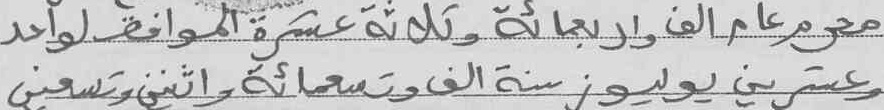 محرم عام الف واربعمائة وثلاثة عشرة الموافق لواحد
وعشرين يوليوز سنة الف وتسعمائة واثنين وتسعين